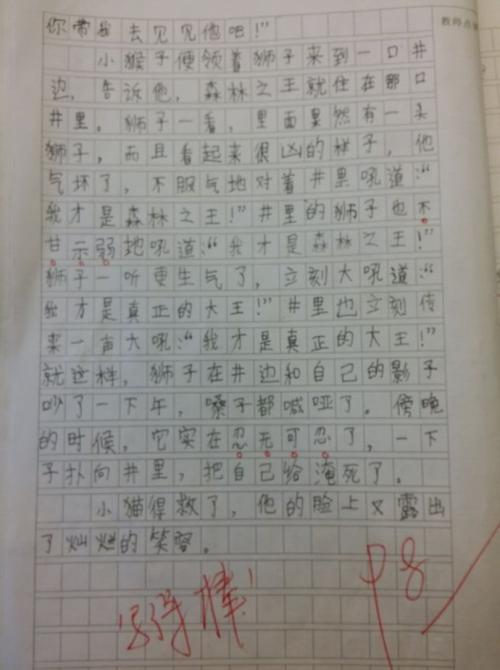 你带我去见见他吧！”
教师点
小猴子便领着狮子来到一口井
边，告诉他，森林之王就住在那口
井里。狮子一看，里面果然有一头
狮子，而且看起来很凶的样子，他
气坏了，不服气地对着井里吼道：“
我才是森林之王！”井里的狮子也不
甘示弱地吼道：“我才是森林之王！”
狮子一听更生气了，立刻大吼道：“
我才是真正的大王！”井里也立刻传
来一声大吼：“我才是真正的大王！”
就这样，狮子在井边和自己的影子
吵了一下午，嗓子都喊哑了。傍晚
的时候，它实在忍无可忍了，一下
子扑向井里，把自己给淹死了。
小猫得救了，他的脸上又露出
了灿烂的笑容。
写得棒！
98